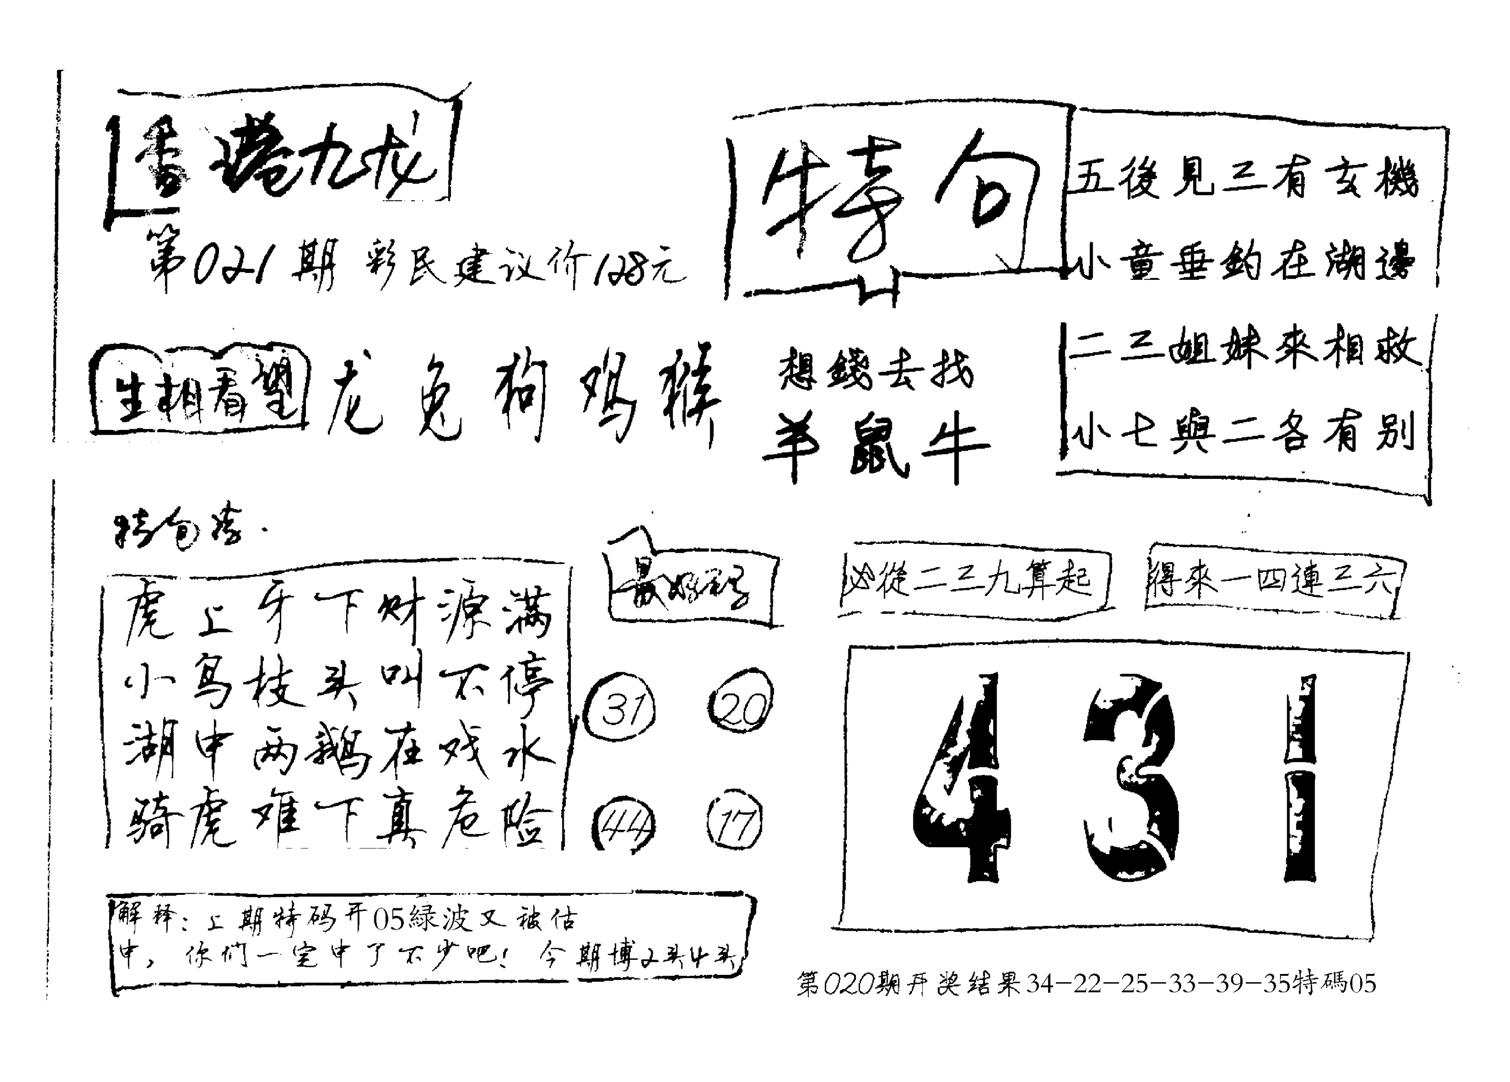 香港九龙
第021期 彩民建议价128元
特句
五後見三有玄機
小童垂釣在湖邊
二三姐妹來相救
小七與二各有别
生相看望
龙兔狗鸡猴
想錢去找
羊鼠牛
特句诗.
虎上牙下财源满
小鸟枝头叫不停
湖中两鹅在戏水
骑虎难下真危险
最好码
31 20
44 17
必從二三九算起
得來一四連三六
431
解释:上期特码开05緑波又被估
中,你們一定中了不少吧!今期博2头4头
第020期开奖结果34-22-25-33-39-35特碼05